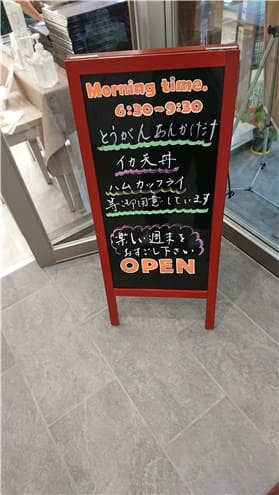 Morning time.
6:30~9:30
とうがんあんかけ汁
イカ天丼
ハムカツフライ
等御用意しています
楽しい週末を
おすごし下さい
OPEN